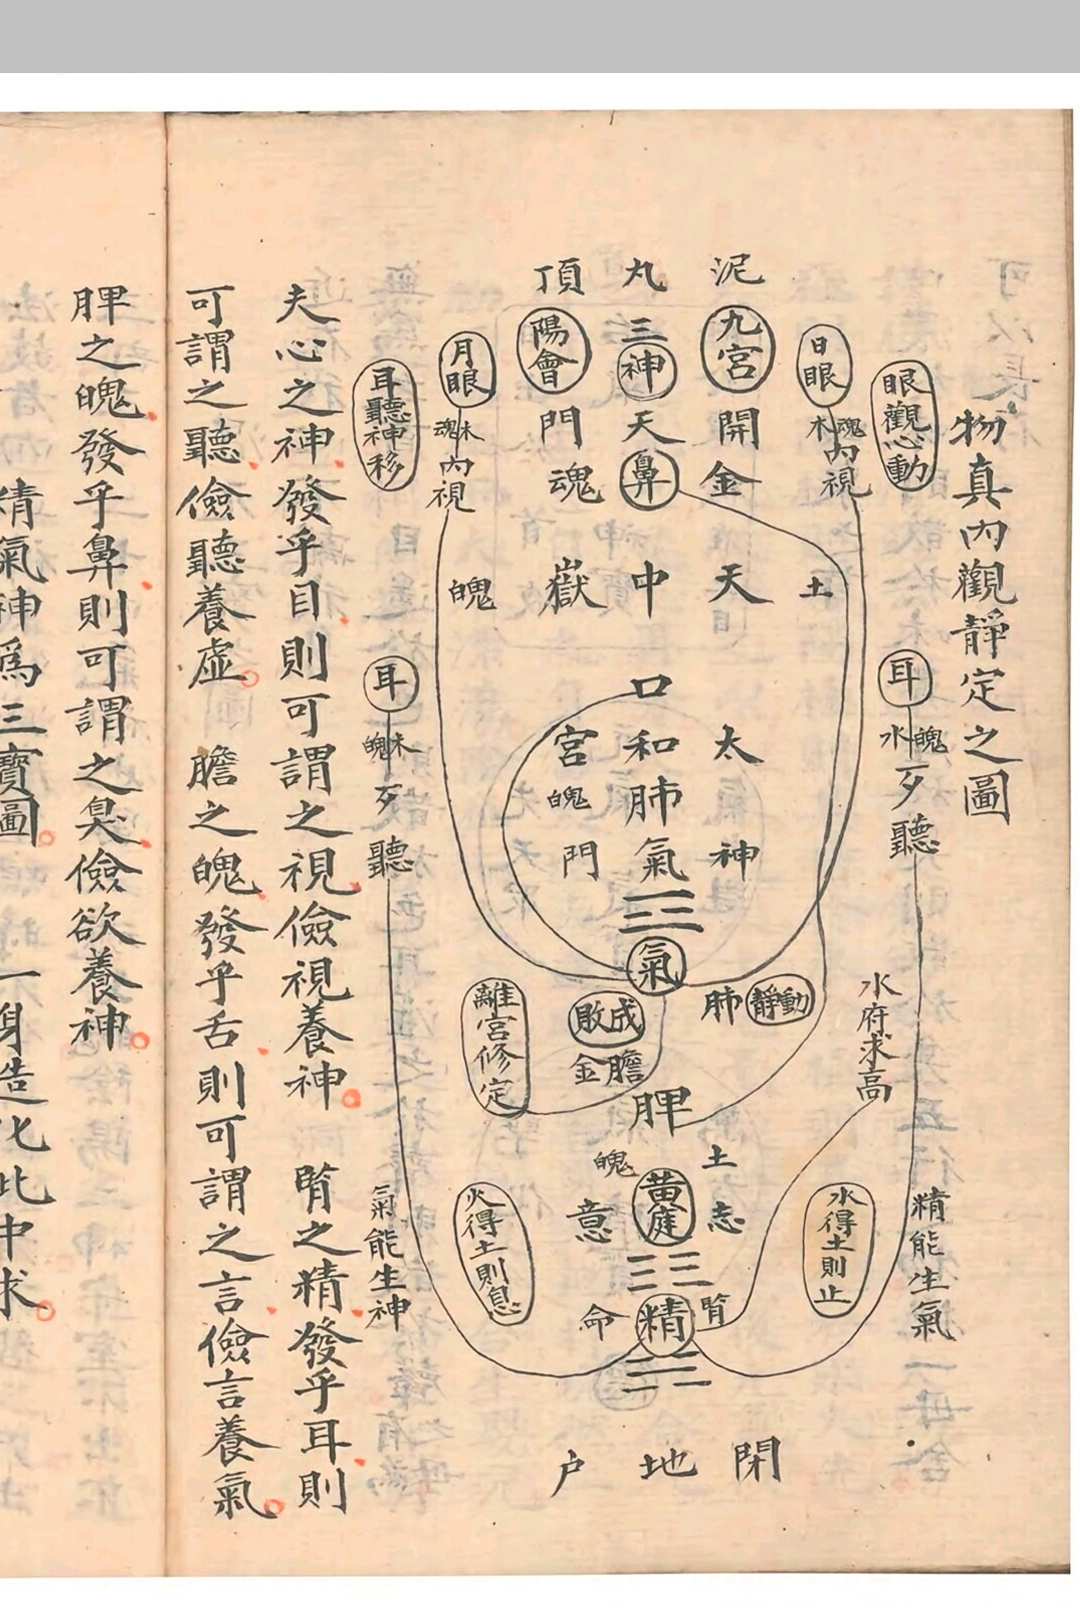 物真內觀靜定之圖
泥丸頂
九宮
三神
陽會
日眼
月眼
眼觀心動
耳聽神移
開天門
鼻
金
魂
魂木
內視
魂木
內視
土
天中嶽
魄
口
太和宮
肺
魄
神氣門
耳
水魄
歹聽
耳
魄水
歹聽
氣
肺
動靜
成敗
膽金
離宮修定
水府求高
脾
土
魄
志
黃庭
意
水得土則止
火得土則息
精能生氣
氣能生神
腎
精
命
閉地户
夫心之神發乎目則可謂之視儉視養神 腎之精發乎耳則
可謂之聽儉聽養虛 膽之魄發乎舌則可謂之言儉言養氣
脾之魄發乎鼻則可謂之臭儉欲養神
精氣神為三寶圖 一身造化此中求